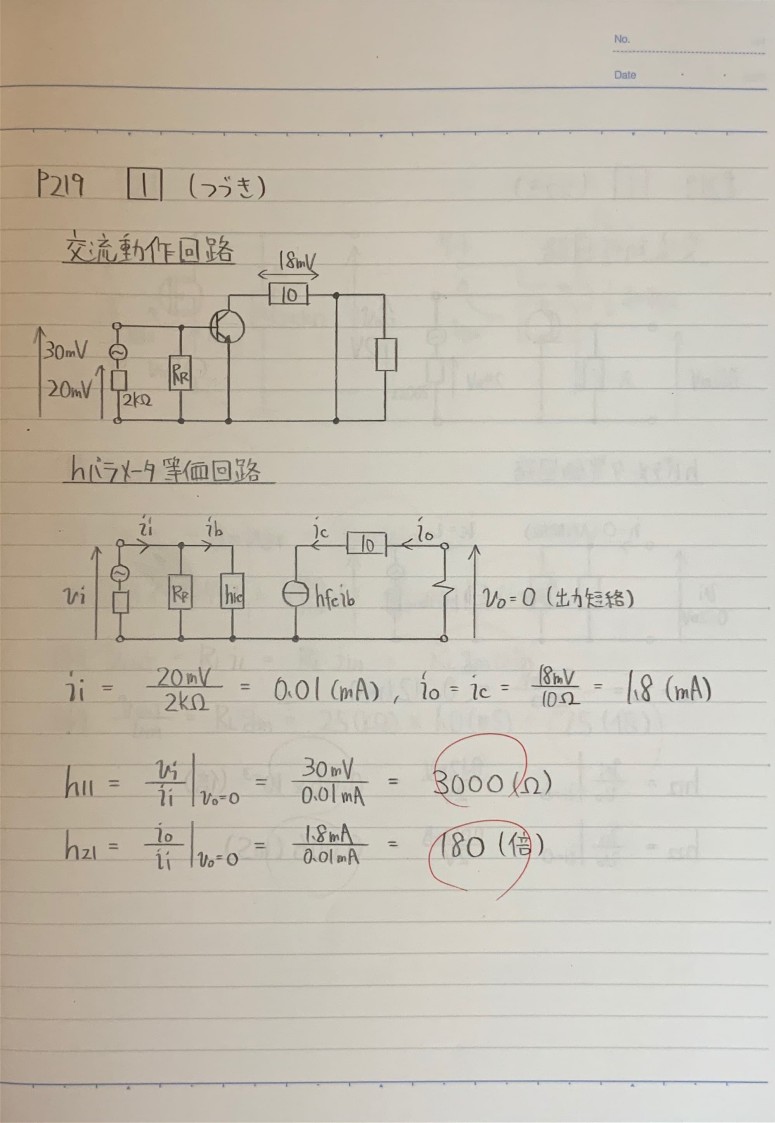 No.
Date
P219 1 (つづき)
交流動作回路
18mV
10
30mV
20mV
2kΩ
RB
hパラメータ等価回路
ii ib ic 10 io
vi RB hie hfeib vo=0 (出力短絡)
ii = 20mV/2kΩ = 0.01 (mA), io = ic = 18mV/10Ω = 1.8 (mA)
h11 = vi/ii |vo=0 = 30mV/0.01mA = 3000 (Ω)
h21 = io/ii |vo=0 = 1.8mA/0.01mA = 180 (倍)